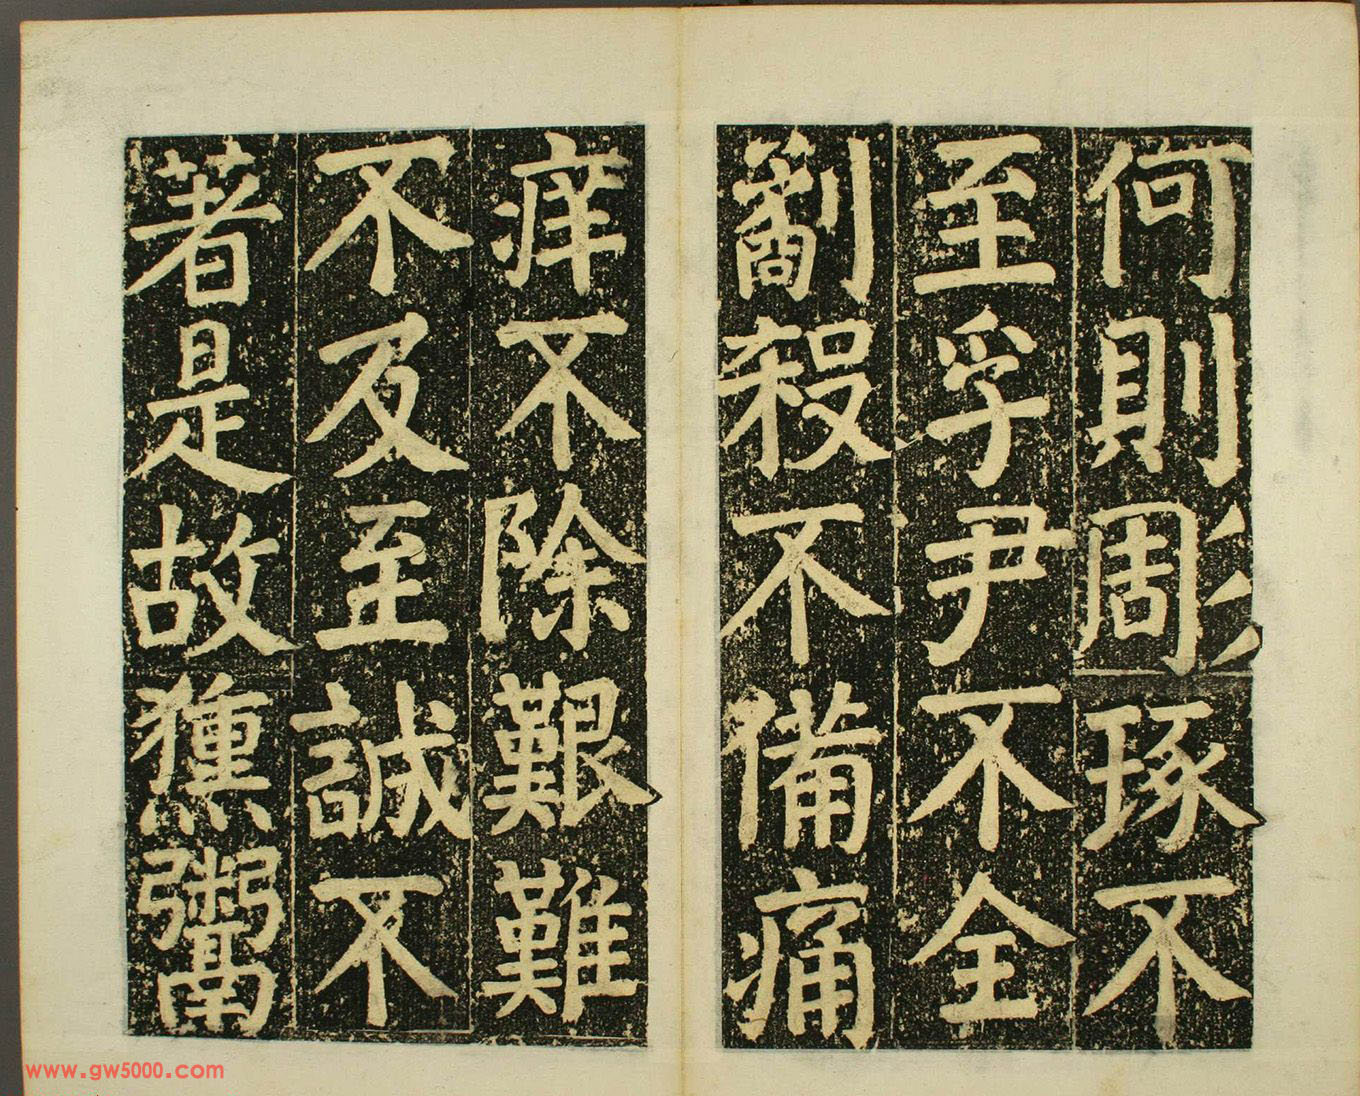 何則彫琢不
至孚尹不全
劄殺不備痛
痒不除艱難
不及至誠不
著是故獯鬻
www.gw5000.com